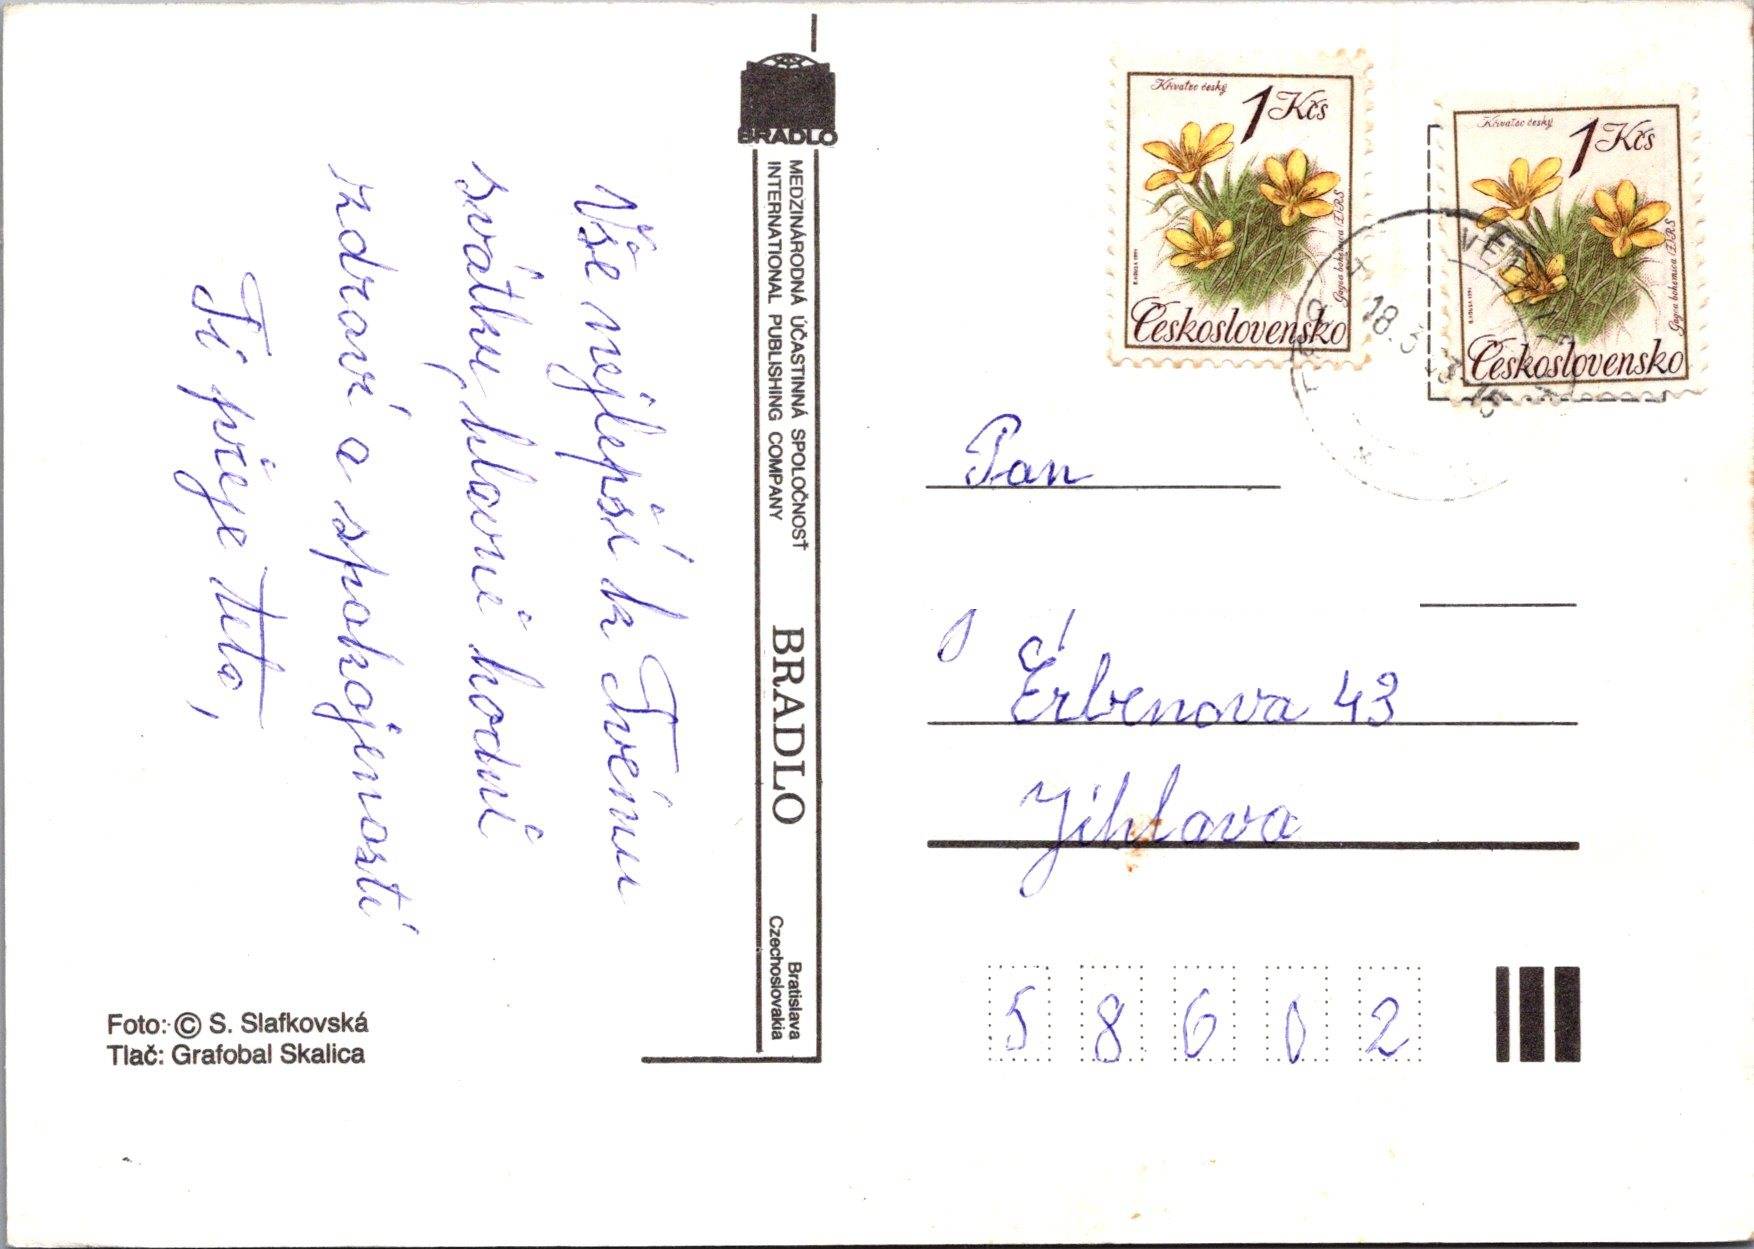 Vše nejlepší k Tvému
svátku, hlavně hodně
zdraví a spokojenosti
Ti přeje teta,
Foto: © S. Slafkovská
Tlač: Grafobal Skalica
BRADLO
MEDZINÁRODNÁ ÚČASTINNÁ SPOLOČNOSŤ
INTERNATIONAL PUBLISHING COMPANY
BRADLO
Bratislava
Czechoslovakia
Křivatec český
1 Kčs
Gagea bohemica
Československo
Křivatec český
1 Kčs
Gagea bohemica
Československo
18.3
15
Pan
Erbenova 43
Jihlava
58602